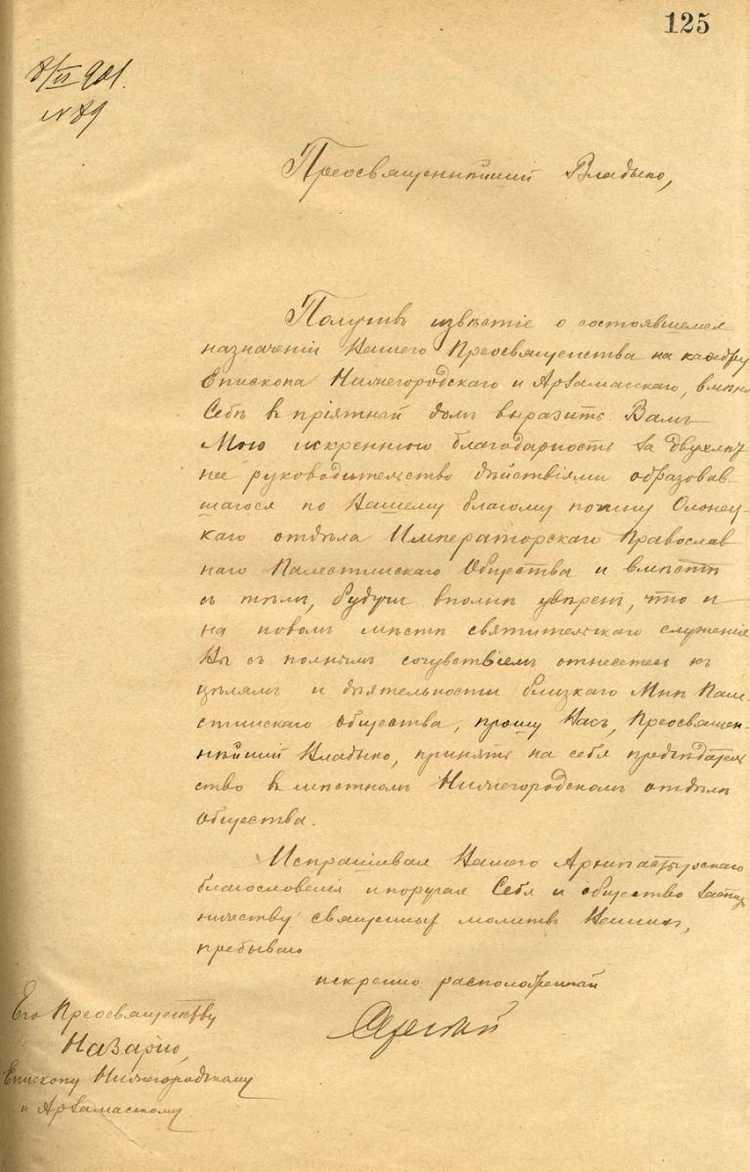 125
8/VI 901.
N 89
Преосвященнѣйшій Владыко,
Получивъ извѣстіе о состоявшемся
назначеніи Вашего Преосвященства на кафедру
Епископа Нижегородскаго и Арзамасскаго, вмѣняю
Себѣ въ пріятный долгъ выразить Вамъ
Мою искреннюю благодарность за двухлѣт
нее руководительство дѣйствіями образовав-
шагося по Вашему благому почину Олонец
каго отдѣла Императорскаго Православ
наго Палестинскаго Общества и вмѣстѣ
съ тѣмъ, будучи вполнѣ увѣренъ, что и
на новомъ мѣстѣ святительскаго служенія
Вы съ полнымъ сочувствіемъ отнесетесь къ
цѣлямъ и дѣятельности близкаго Мнѣ Пале-
стинскаго общества, прошу Васъ, Преосвящен-
нѣйшій Владыко, принять на себя предсѣдатель
ство въ мѣстномъ Нижегородскомъ отдѣлѣ
общества.
Испрашивая Вашего Архипастырскаго
благословенія и поручая Себя и общество заступ
ничеству священныхъ молитвъ Вашихъ,
пребываю
искренно расположенный
Сергѣй
Его Преосвященству
Назарію,
Епископу Нижегородскому
и Арзамасскому